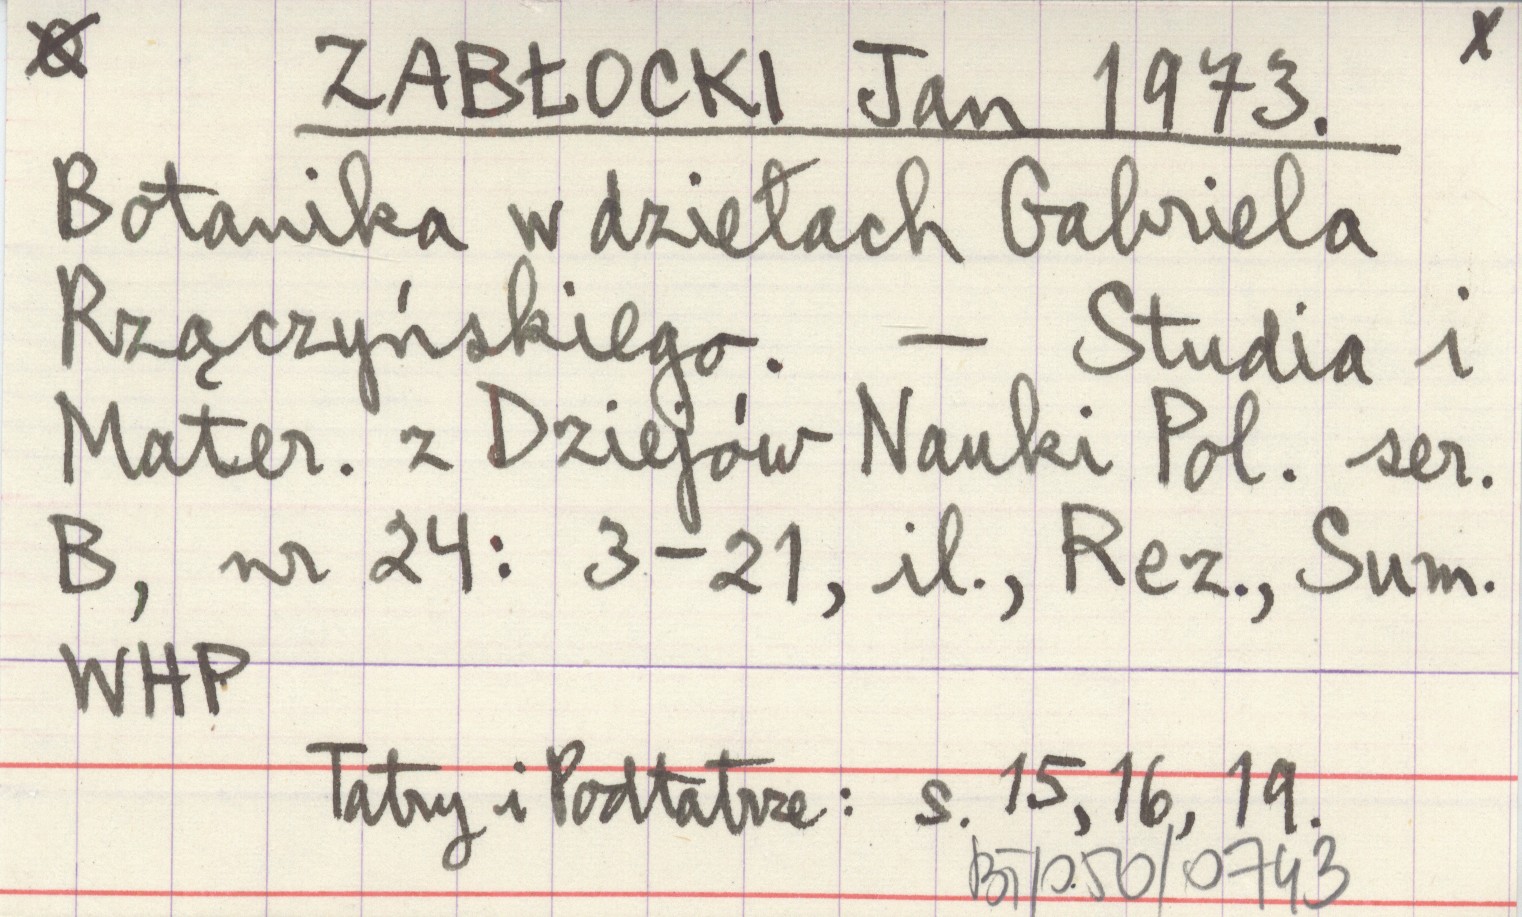 X
ZABŁOCKI Jan 1973.
Botanika w dziełach Gabriela
Rzączyńskiego. — Studia i
Mater. z Dziejów Nauki Pol. ser.
B, nr 24: 3-21, il., Rez., Sum.
WHP
Tatry i Podtatrze: s. 15, 16, 19.
BT/p.50/0743